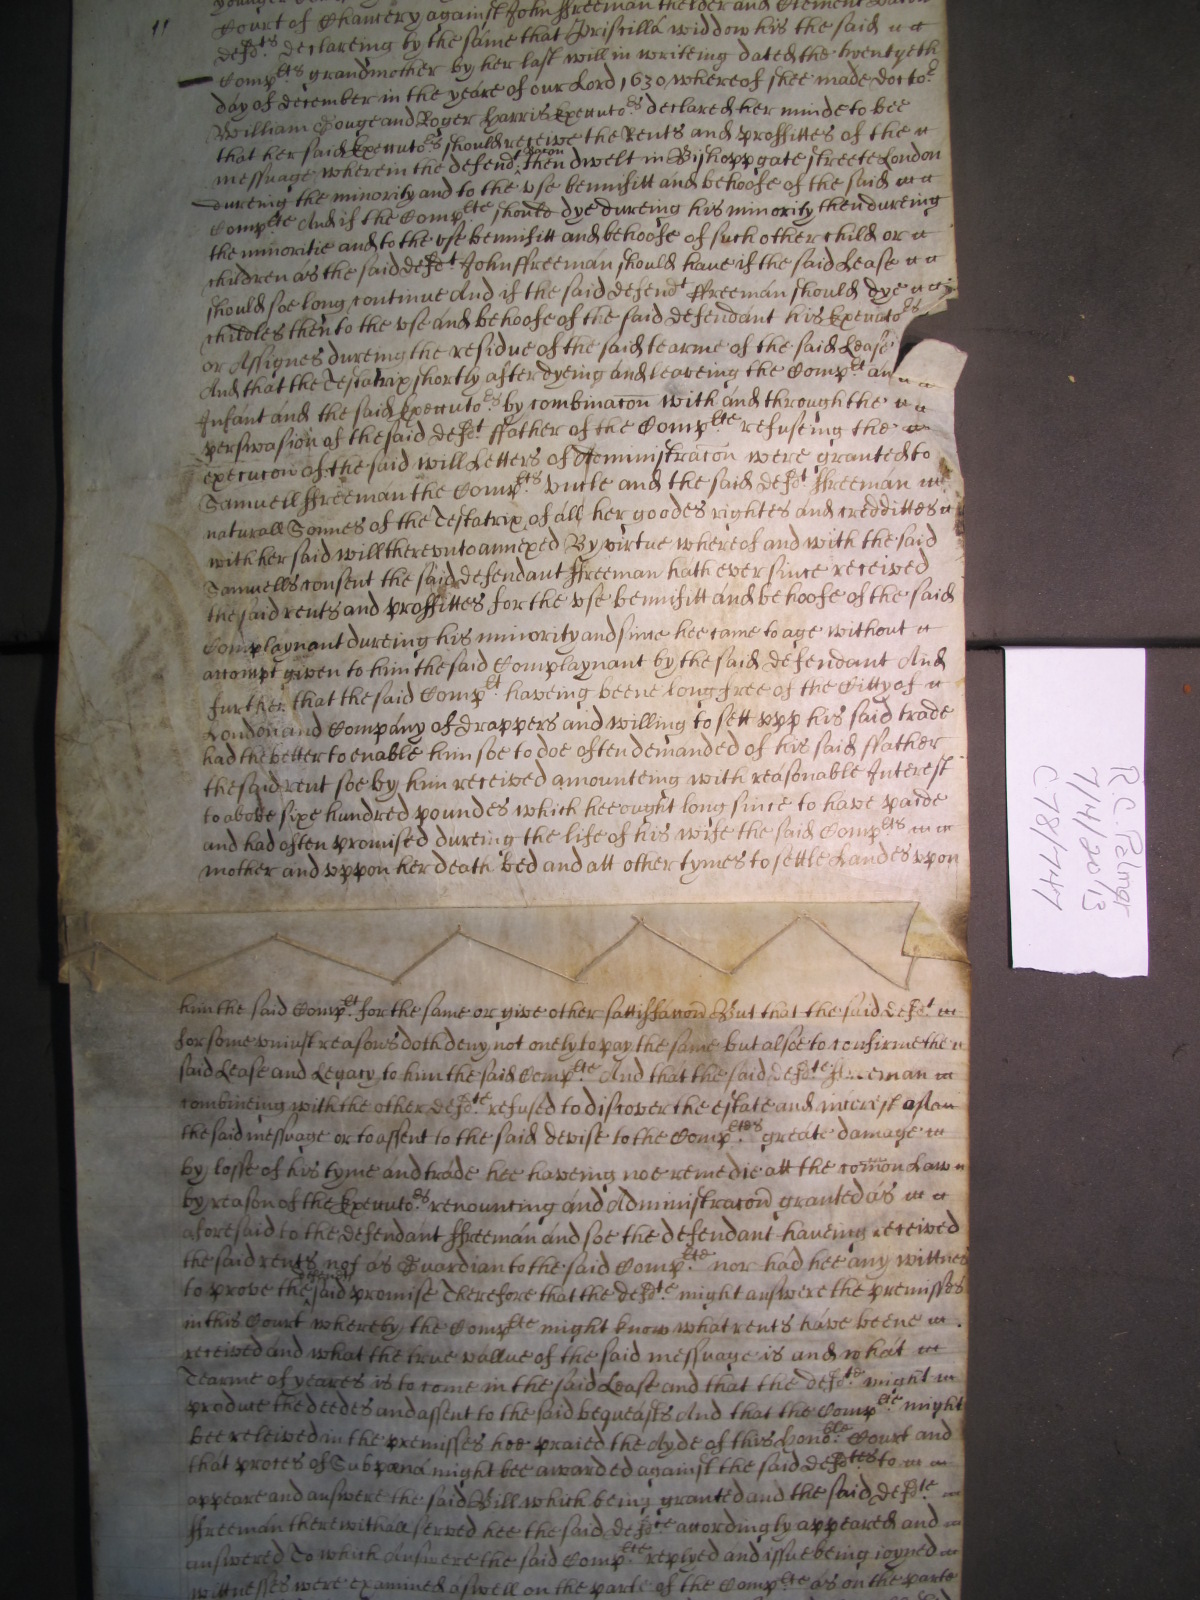 11
Court of Chancery against John Ffreeman thelder and Clement Bacon
defdts declareing by the same that Priscilla widdow his the said
Complts grandmother by her last will in writeing dated the twentyeth
day of december in the yeare of our Lord 1630 whereof shee made doctor
William Gouge and Roger Harris Executors declared her minde to bee
that her said Executors should receive the Rents and proffittes of the
messuage wherein the defendt Bacon then dwelt in Bishoppgate streete London
dureing the minority and to the use bennifitt and behoofe of the said
Complte And if the Complte should dye dureing his minority then dureing
the minoritie and to the use bennifitt and behoofe of such other child or
children as the said defdt John Ffreeman should have if the said Lease
should soe long continue And if the said defendt Ffreeman should dye
childles then to the use and behoofe of the said defendant his Executors
or Assignes dureing the residue of the said tearme of the said Lease
And that the Testatrix shortly after dyeing and leaveing the Complt an
Infant and the said Executors by combinacon with and through the
perswasion of the said defdt ffather of the Complte refuseing the
execucon of the said will Letters of Administracon were granted to
Samuell Ffreeman the Complts Uncle and the said defdt Ffreeman
naturall Sonnes of the Testatrix of all her goodes rightes and creddittes
with her said will thereunto annexed By virtue whereof and with the said
Samuells consent the said defendant Ffreeman hath ever since received
the said rents and proffittes for the use bennifitt and behoofe of the said
Complaynant dureing his minority and since hee came to age without
accompt given to him the said Complaynant by the said defendant And
further that the said Complt haveing beene long free of the Citty of
London and Company of drappers and willing to sett upp his said trade
had the better to enable him soe to doe often demanded of his said ffather
the said rent soe by him received amounteing with reasonable Interest
to above sixe hundred poundes which hee ought long since to have paide
and had often promised dureing the life of his wife the said Complts
mother and uppon her death bed and att other tymes to settle Landes upon
him the said Complt for the same or give other sattisfaccon But that the said defdt
for some uniust reasons doth deny not onely to pay the same but alsoe to confirme the
said Lease and Legacy to him the said Complte And that the said defdte eman
combineing with the other defdte refused to discover the estate and interest
the said messuage or to assent to the said devise to the Compltes greate damage
by losse of his tyme and trade hee haveing noe remedie att the comon Law
by reason of the Executors renouncing and Administracon granted as
aforesaid to the defendant Ffreeman and soe the defendant haveing received
the said rents not as Guardian to the said Complte nor had hee any wittnes
to prove the said promise Therefore that the defdte might answere the premisses
in this Court whereby the Complte might know what rents have beene
received and what the true vallue of the said messuage is and what
Tearme of yeares is to come in the said Lease and that the defdte might
produce the deedes and assent to the said bequeasts And that the Complte might
bee releived in the premisses hee praied the Ayde of this honoble Court and
that proces of Subpena might bee awarded against the said defdtes to
appeare and answere the said Bill which being granted and the said defdte
Ffreeman therewithall served hee the said defdte accordingly appeared and
answered To which Answere the said Complte replyed and issue being ioyned
wittnesses were examined aswell on the parte of the Complte as on the parte
R.C. Palmer
7/14/2013
C78/747